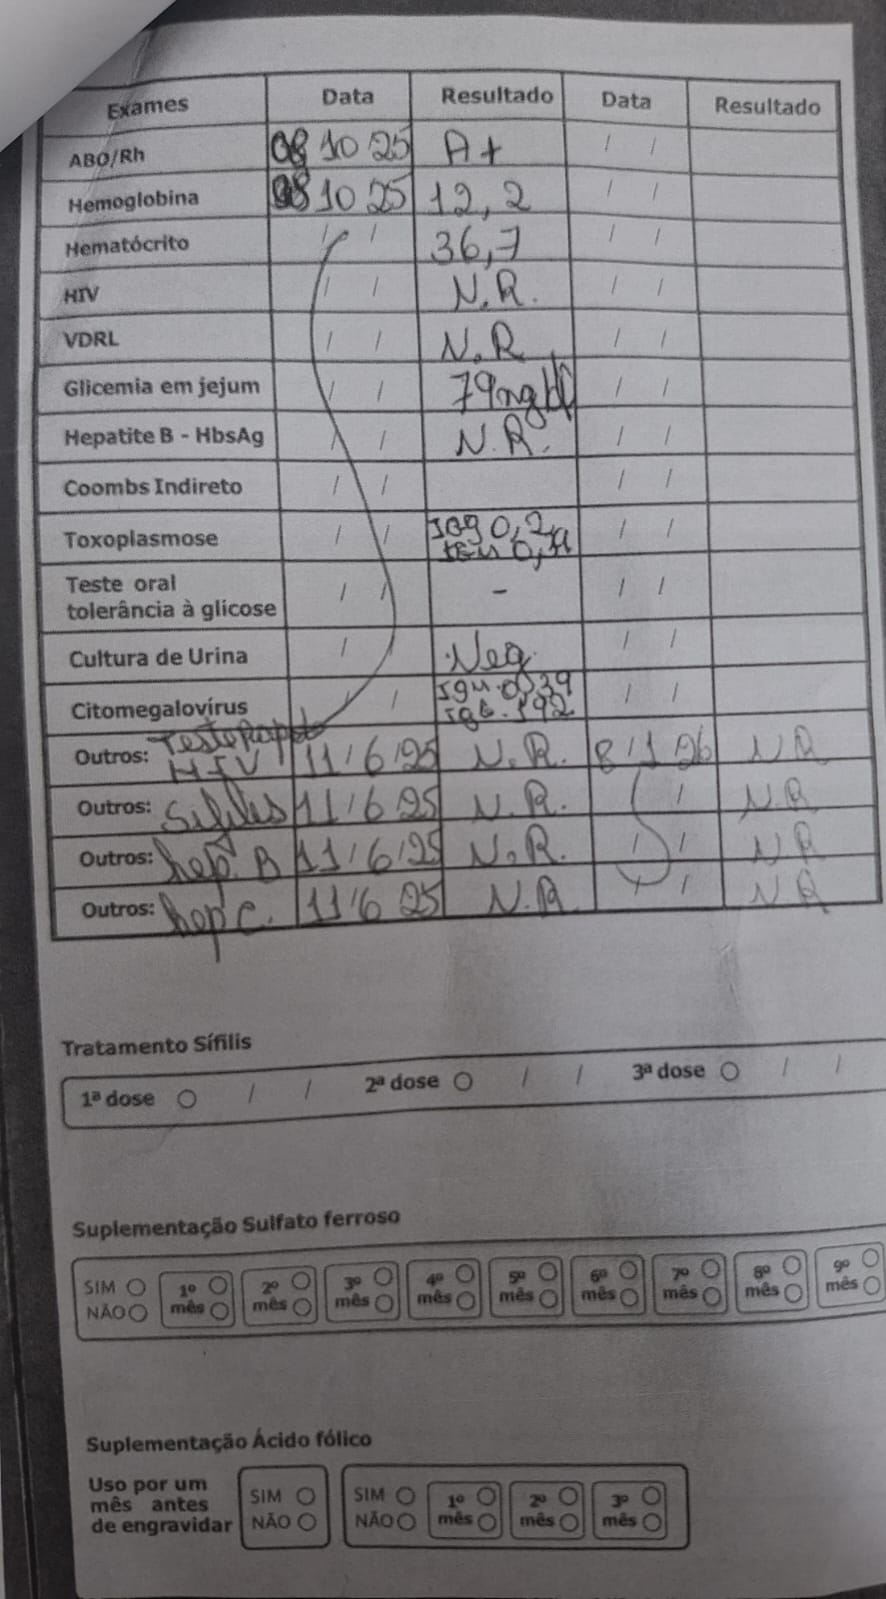 Exames Data Resultado Data Resultado
ABO/Rh 08 10 25 A+ / /
Hemoglobina 08 10 25 12,2 / /
Hematócrito / / 36,7 / /
HIV / / N.R. / /
VDRL / / N.R / /
Glicemia em jejum / / 79mg/dl / /
Hepatite B - HbsAg / / N.R. / /
Coombs Indireto / / / /
Toxoplasmose / / IGg 0,2 / /
Teste oral
tolerância à glicose / / - / /
Cultura de Urina / Neg. / /
Citomegalovírus / / IgM.0,39 / /
IgG. 192
Outros: Teste Rapido
HIV 11/6/25 N.R. 8/1 26 NR
Outros: Sifiles 11/6 25 N.R. / N.R
Outros: hep. B 11/6/25 N.R. / / NR
Outros: hep C. 11/6 25 N.R / / NR
Tratamento Sífilis
1ª dose / / 2ª dose / / 3ª dose / /
Suplementação Sulfato ferroso
SIM 1º 2º 3º 4º 5º 6º 7º 8º 9º
NÃO mês mês mês mês mês mês mês mês mês
Suplementação Ácido fólico
Uso por um
mês antes
de engravidar
SIM
NÃO
SIM 1º 2º 3º
NÃO mês mês mês